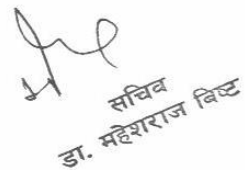 सचिव
डा. महेशराज विष्ट